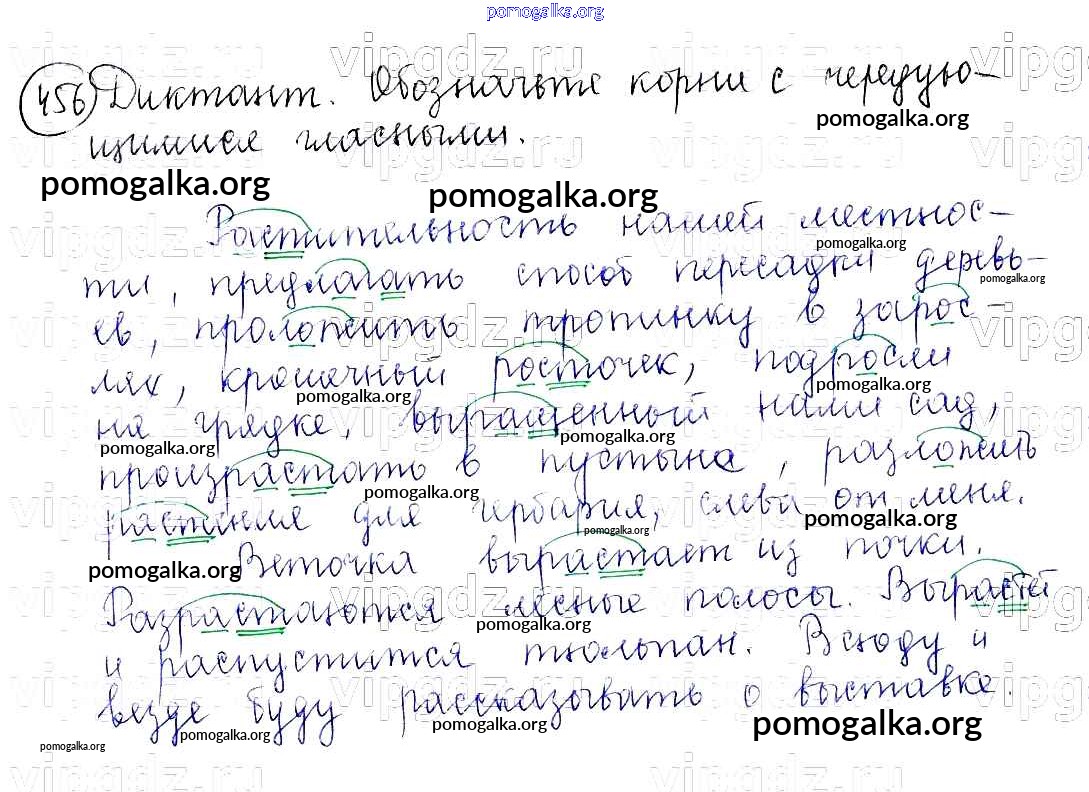 pomogalka.org
456 Диктант. Обозначьте корни с чередую-
щимися гласными.
pomogalka.org
pomogalka.org
pomogalka.org
Растительность нашей местнос-
pomogalka.org
ти, предлагать способ пересадки деревь-
pomogalka.org
ев, проложить тропинку в зарос-
лях, крошечный росточек, подросли
pomogalka.org
pomogalka.org
на грядке, выращенный нами сад,
pomogalka.org
pomogalka.org
произрастать в пустыне, разложить
pomogalka.org
растения для гербария, слева от меня.
pomogalka.org
pomogalka.org
Веточка вырастает из почки.
pomogalka.org
Разрастаются лесные полосы. Вырастет
pomogalka.org
и распустится тюльпан. Всюду и
везде буду рассказывать о выставке.
pomogalka.org
pomogalka.org
pomogalka.org
pomogalka.org
vipgdz.ru